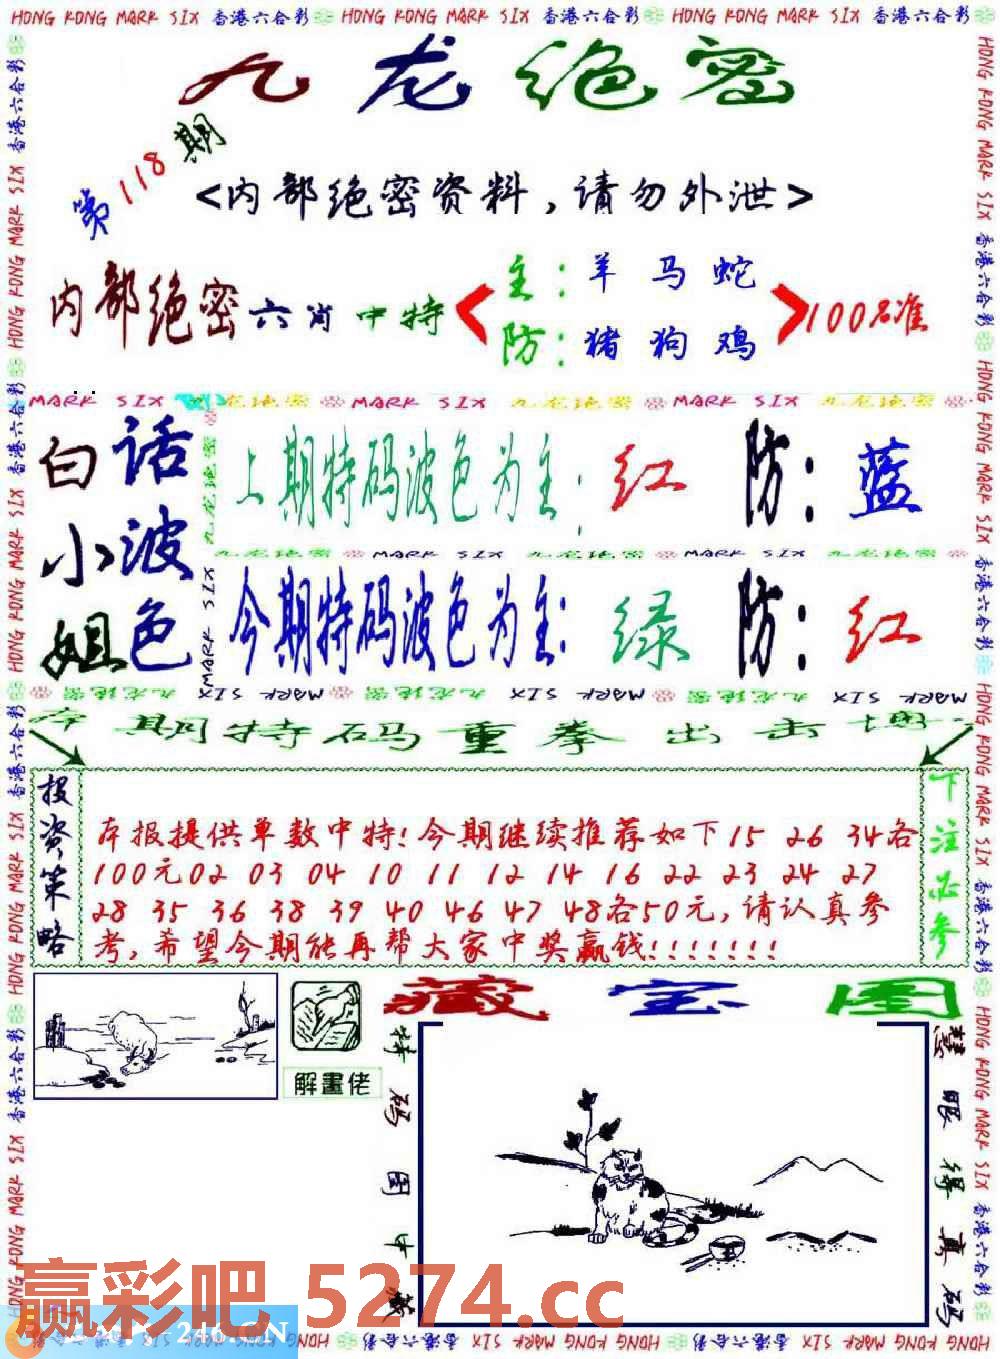 HONG KONG MARK SIX 香港六合彩 HONG KONG MARK SIX 香港六合彩 HONG KONG MARK SIX 香港六合彩
九龙绝密
第118期
<内部绝密资料,请勿外泄>
内部绝密六肖中特
主:羊 马 蛇
防:猪 狗 鸡
100%准
MARK SIX 九龙绝密 MARK SIX 九龙绝密 MARK SIX 九龙绝密
白小姐
话波色
上期特码波色为主:红 防:蓝
九龙绝密 MARK SIX 九龙绝密 MARK SIX 九龙绝密
今期特码波色为主:绿 防:红
本期特码重拳出击
投资策略
本报提供单数中特!今期继续推荐如下15 26 34各
100元02 03 04 10 11 12 14 16 22 23 24 27
28 35 36 38 39 40 46 47 48各50元,请认真参
考,希望今期能再帮大家中奖赢钱!!!!!!!
下注必参
藏宝图
解畫佬
特码图中藏
慧眼得真码
赢彩吧 5274.cc
246T.CN